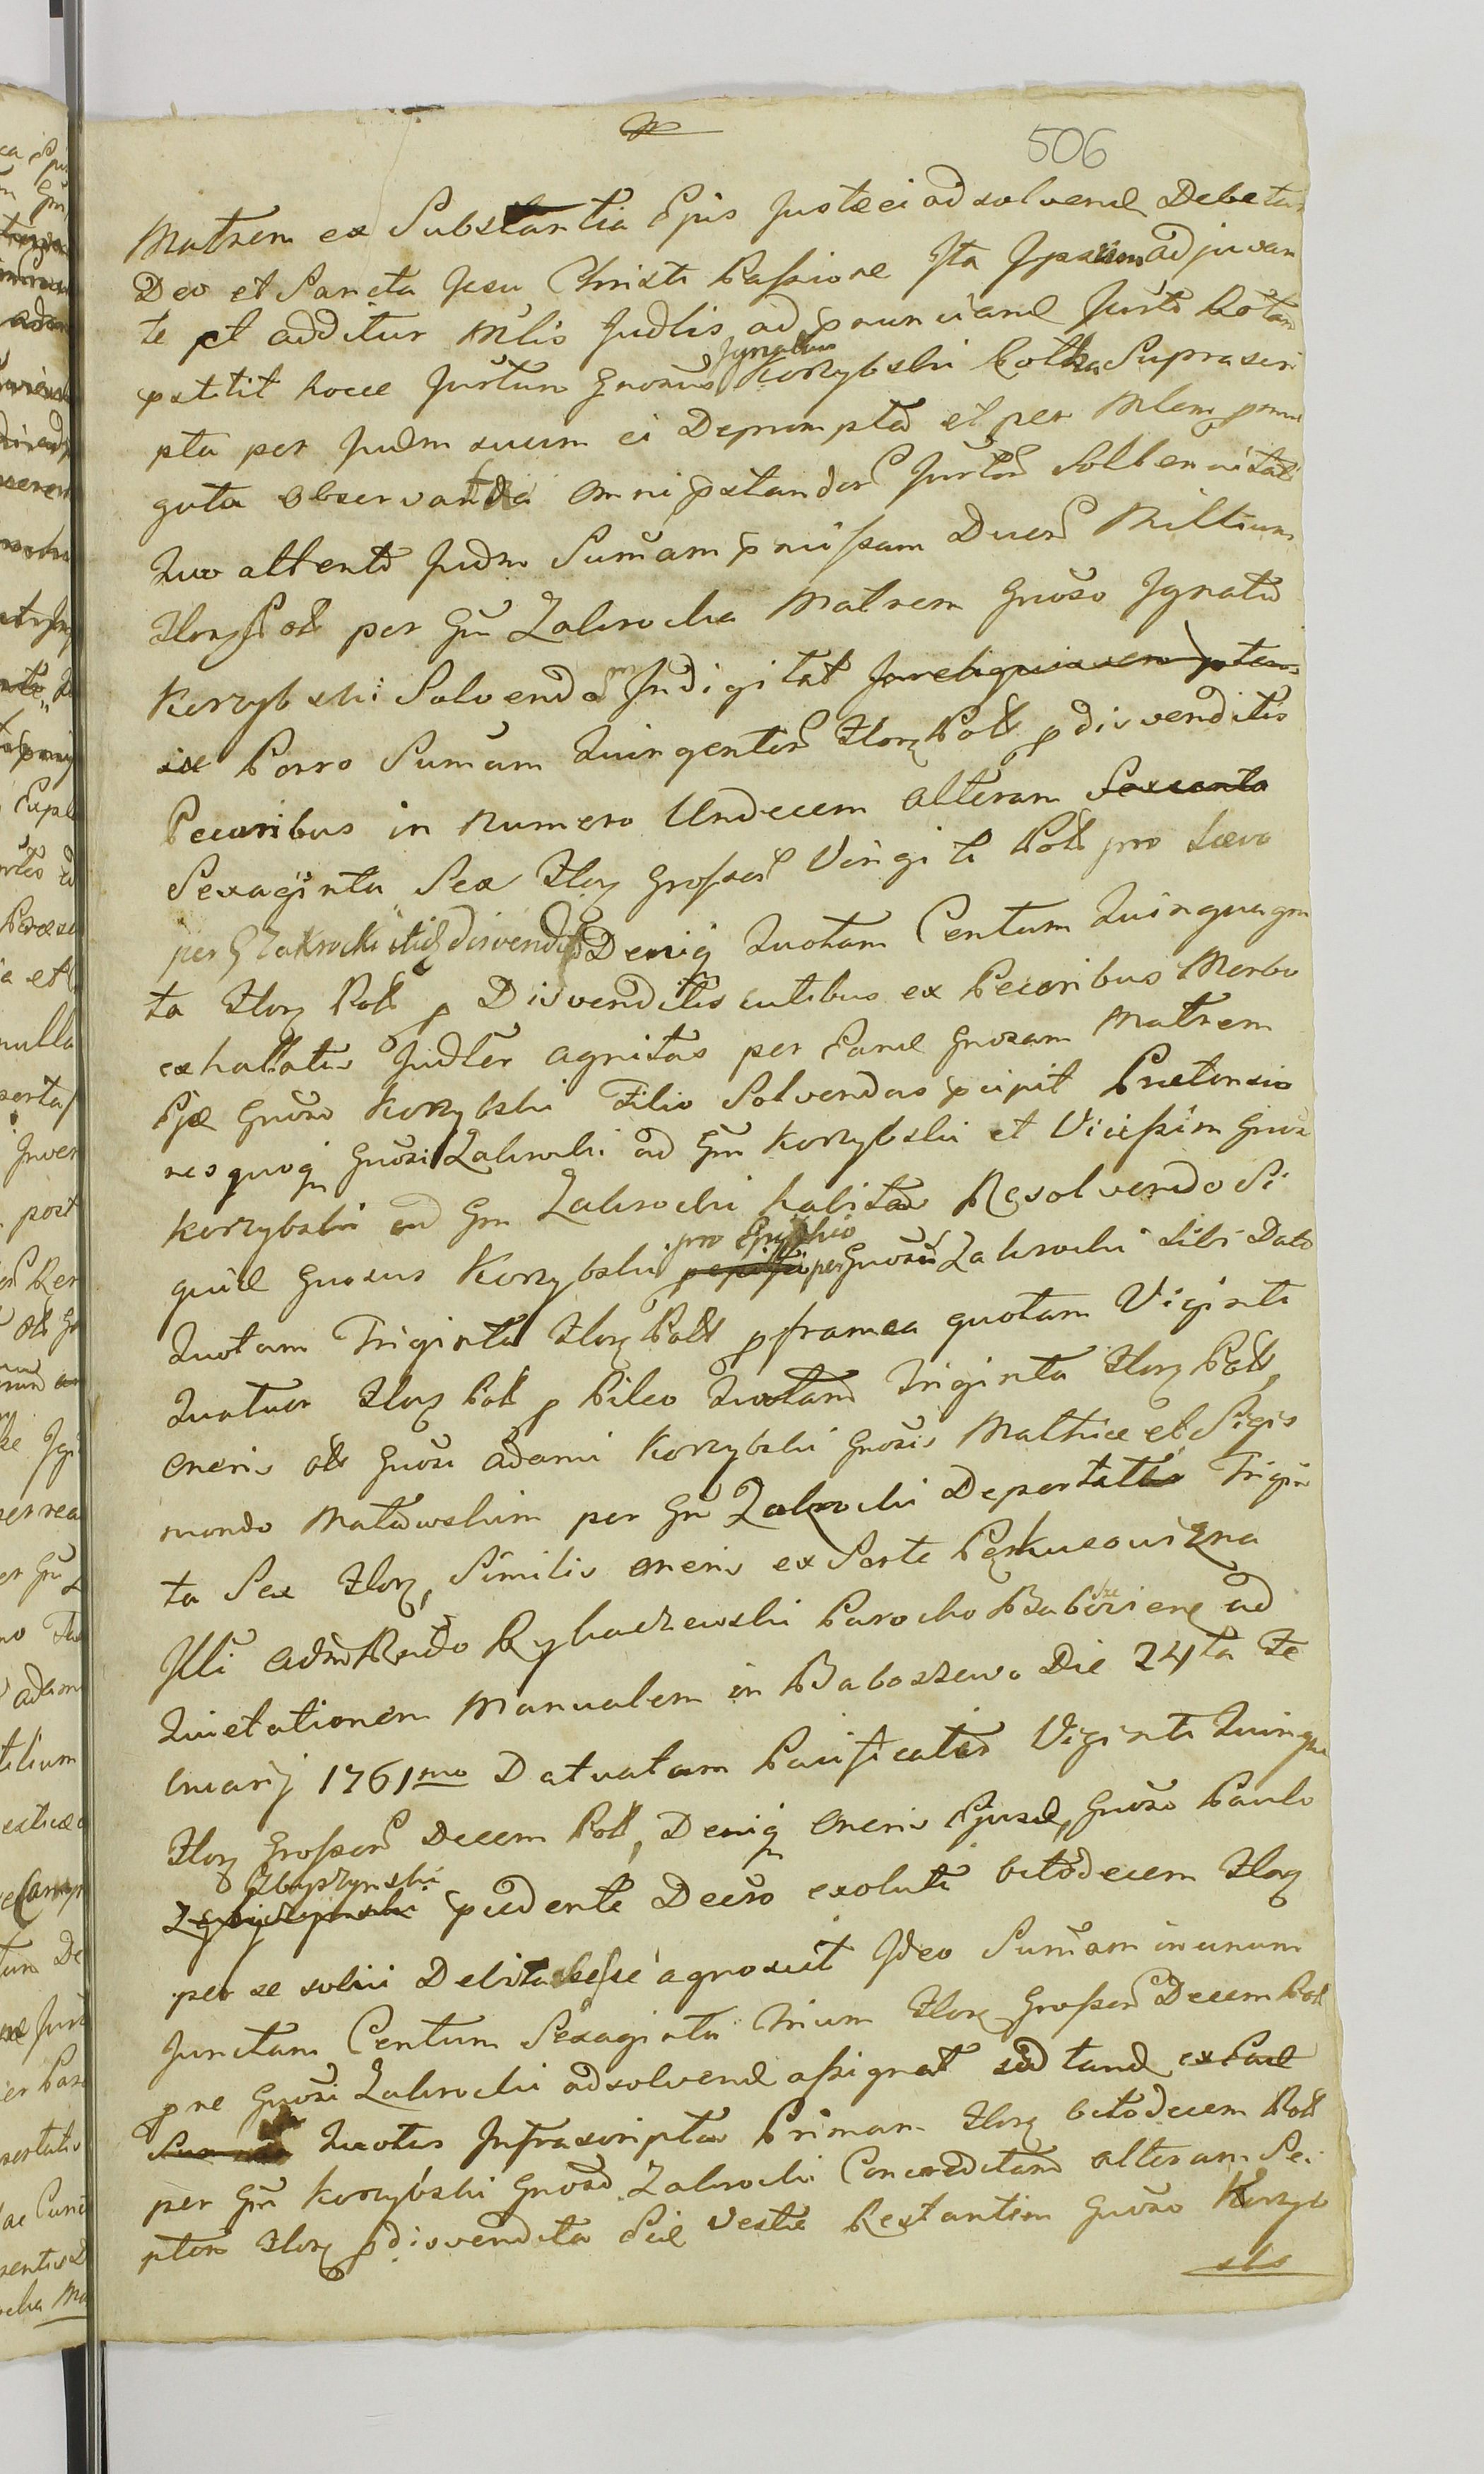 506
Matrem ex Substantia Ejus Juste ei adsolvend Debetur
Deo et Sancta Jesu Christi Passione Ita Ipsum adjuvan
te et additur Mlis Judlis ad pnunciand Jurto Rotam
Ignatius
pstitit hocce Jurtum Gnosus Korzybski Rotha Suprascri
pta per Judm suum ei Deprompta et per Mlem
gata observanda omni pstandor Jurtor Sollennitati
Quo attento Judm Sumam pmissam Duor Millium
Flor Poll per Gm Zakrocka Matrem Gnoso Ignatio
Korzybski Solvendam Indigitat
Porro Sumam Quingentor Flor Poll p disvenditis
Pecoribus in Numero Undecem alteram Sexcenta
Sexaginta Sex Flor Grossor Viginti Poll pro
per G Zakrocki disvendit Deniq Quotam Centum Quinquagin
ta Flor Poll p Disvenditis cutibus ex Pecoribus Morbo
exhallatis Judler agnitas per Eand Gnosam Matrem
Ejae Gnoso Korzybski Filio Solvendas pcipit Praetensio
nes quoq Gnosi Zakrocki ad Gm Korzybski et Vicissim Gnosi
Korzybski ad Gm Zakrocki habitas Resolvendo Si
pro Ephippio
quid Gnosus Korzybski per Gnosum Zakrocki sibi Dato
Quotam Triginta Flor Poll p framea quotam Viginti
Quatuor Flor Poll p Pileo Quotam Triginta Flor Poll,
eneris Gnosi Adami Korzybski Gnosis Mathiae et Sigis
mondo Mataowskim per Gm Zakrocki Deportatis Trigin
ta Sex Flor, Similis eneris ex Sorte
Illi Adm Rndo Rybaczewski Parocho Babosziens ad
Quietationem Manualem in Baboszewo Die 24ta Fe
bruarij 1761mo Datuatam Pacificatis Viginti Quinque
Flor Grossor Decem Poll, Deniq eneris Ejusd, Gnoso Paulo
Zbyszynski
pcedente Decro exoluti octodecem Flor
per se solvi Debita esse agnoscit Ideo Sumam in unum
Junctam Centum Sexaginta Trium Flor Grossor Decem Poll
p ne Gnosi Zakrocki adsolvend assignat ex Ead
Quotis Infrascriptis Primam Flor octodecem Poll
per Gm Korzybski Gnoso Zakrocki Concreditam alteram Se
ptem Flor p disvendita Vestis Restantim Gnoso Korzyb
sks